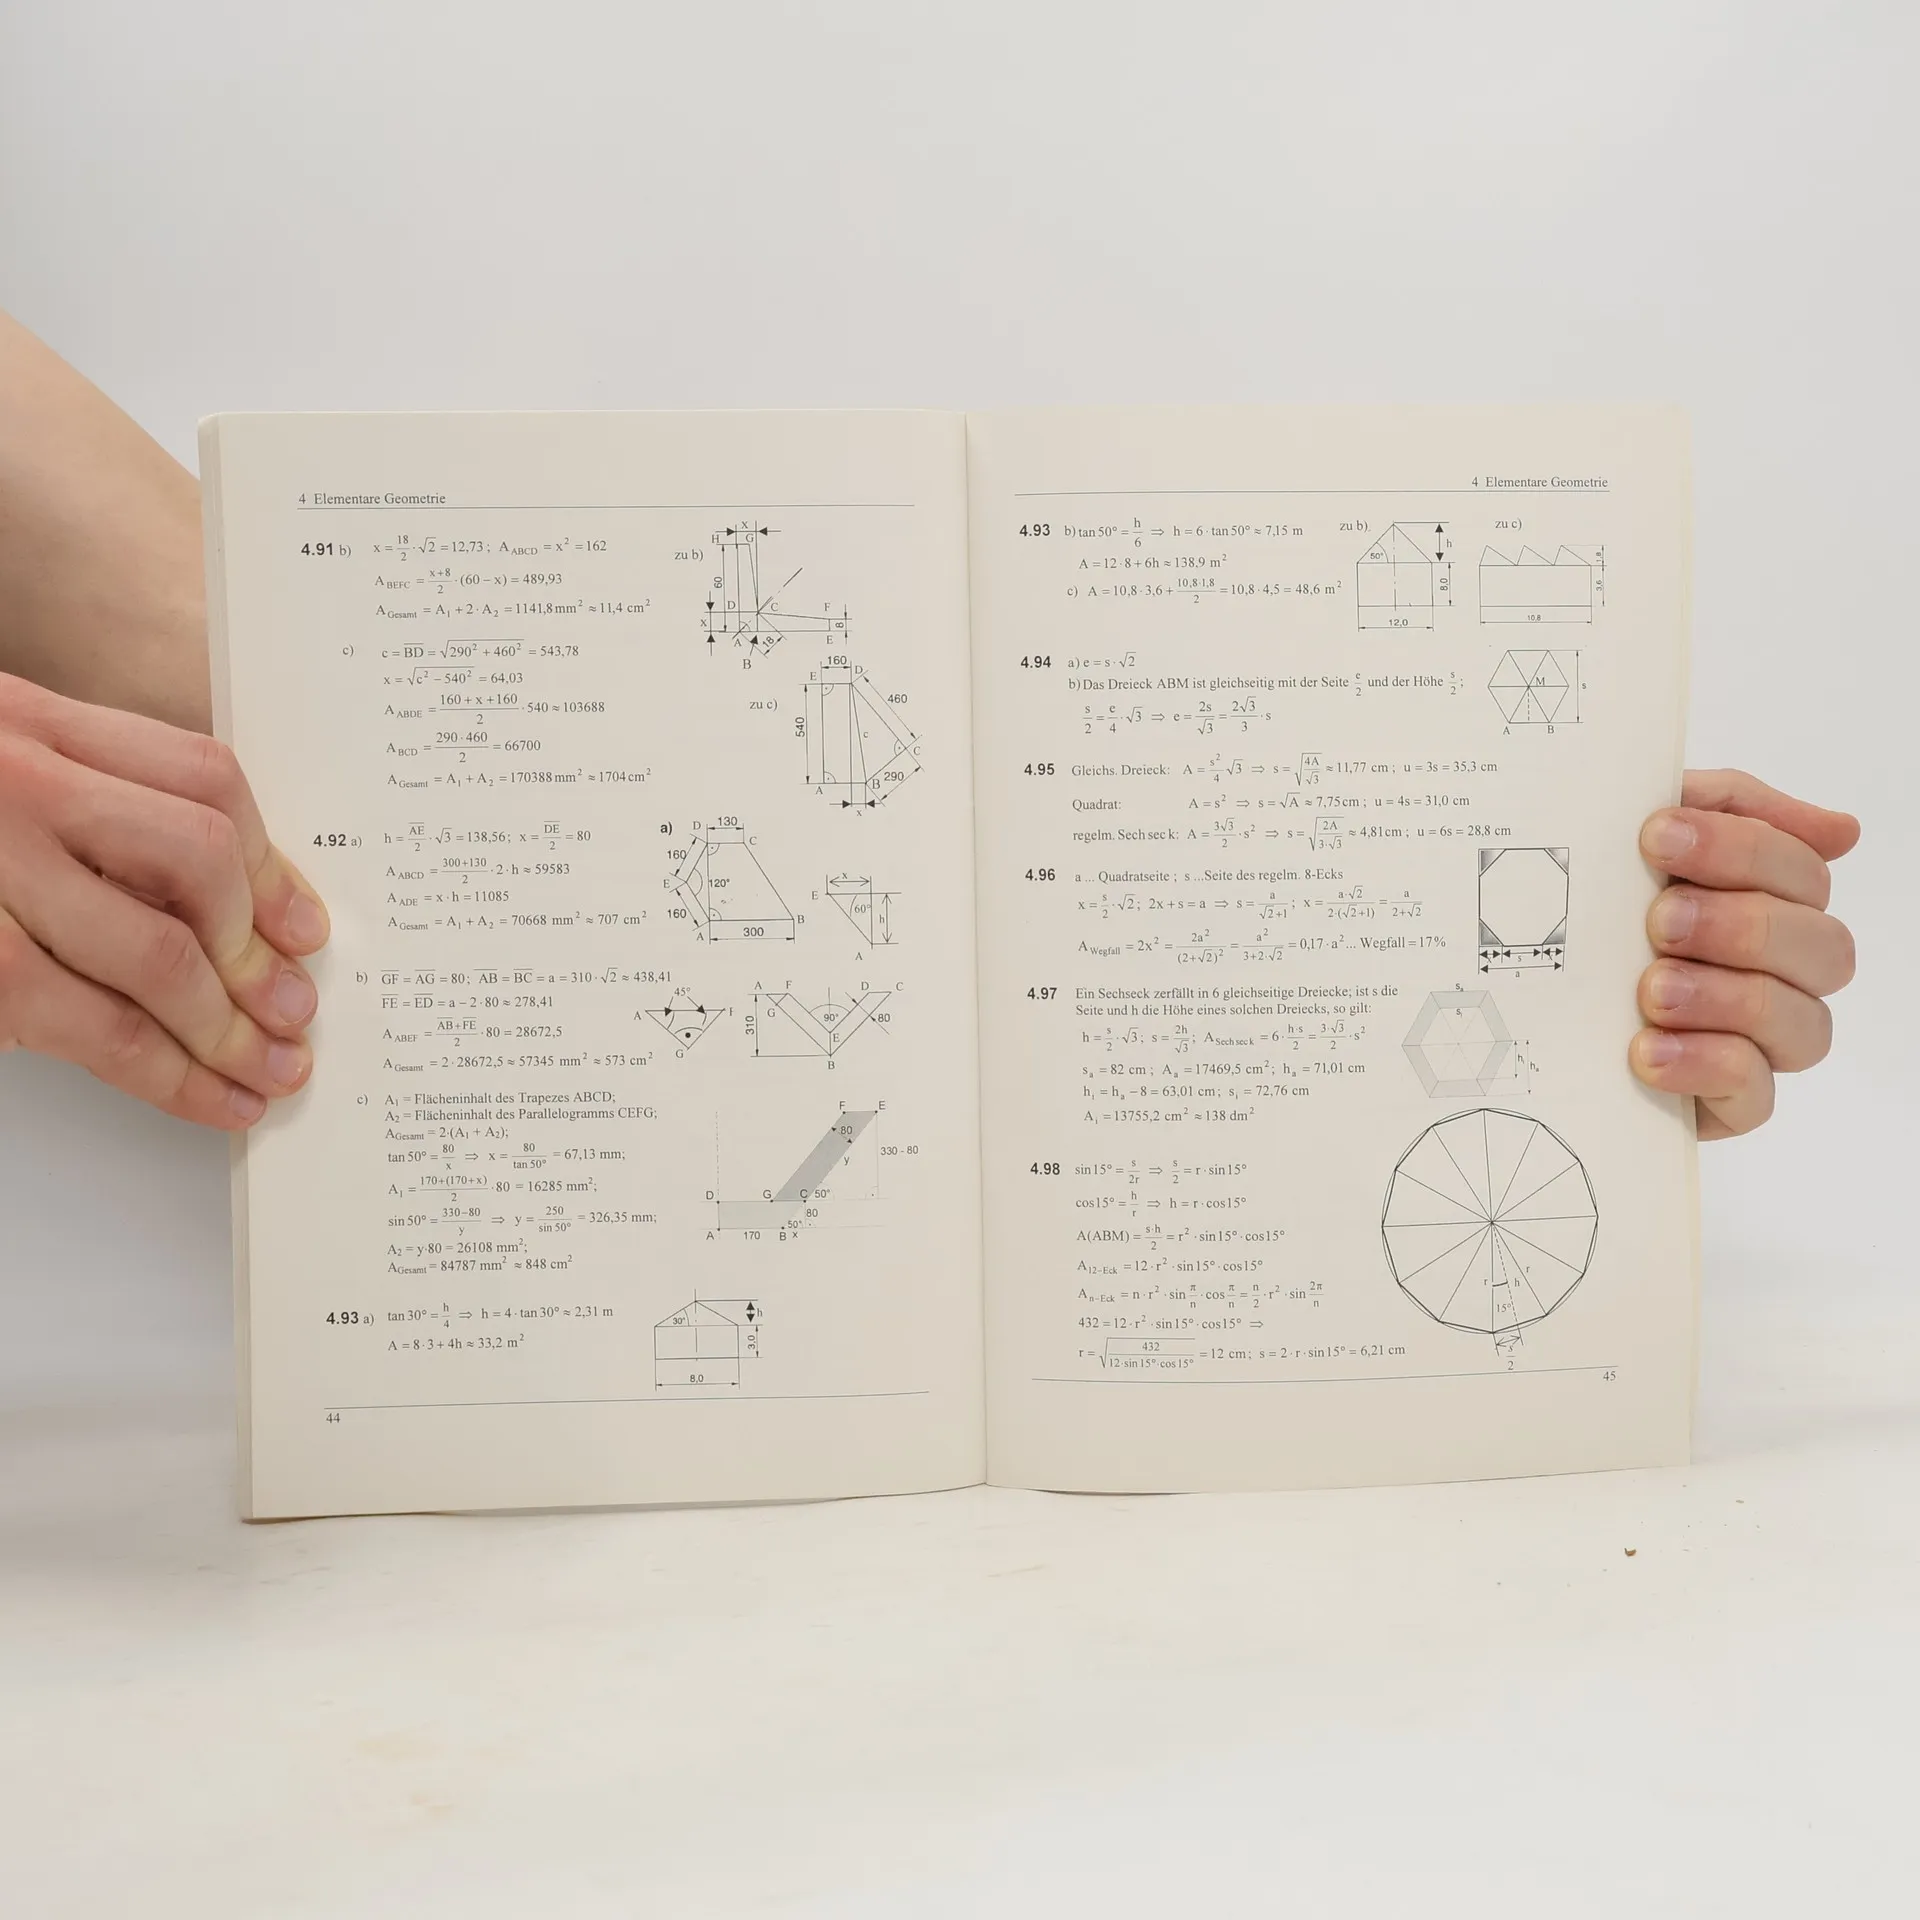 4 Elementare Geometrie
4.91 b) x = 18/2 · √2 = 12,73 ; A ABCD = x² = 162
A BEFC = (x+8)/2 · (60 − x) = 489,93
A Gesamt = A₁ + 2 · A₂ = 1141,8 mm² ≈ 11,4 cm²
zu b)
X
H G
60
D C F
x 8
A 18 E
B
c) c = BD = √(290² + 460²) = 543,78
x = √(c² − 540²) = 64,03
A ABDE = (160 + x + 160)/2 · 540 ≈ 103688
A BCD = (290 · 460)/2 = 66700
A Gesamt = A₁ + A₂ = 170388 mm² ≈ 1704 cm²
zu c)
160
E D
460
540
c
C
290
A B
x
4.92 a) h = AE/2 · √3 = 138,56; x = DE/2 = 80
A ABCD = (300+130)/2 · 2 · h ≈ 59583
A ADE = x · h = 11085
A Gesamt = A₁ + A₂ = 70668 mm² ≈ 707 cm²
a)
130
D C
160
E 120°
160
A B
300
x
E
60°
h
A
b) GF = AG = 80; AB = BC = a = 310 · √2 ≈ 438,41
FE = ED = a − 2 · 80 ≈ 278,41
A ABEF = (AB+FE)/2 · 80 = 28672,5
A Gesamt = 2 · 28672,5 ≈ 57345 mm² ≈ 573 cm²
45°
A F
G
A F D C
G
310 90° 80
E
B
c) A₁ = Flächeninhalt des Trapezes ABCD;
A₂ = Flächeninhalt des Parallelogramms CEFG;
AGesamt = 2·(A₁ + A₂);
tan 50° = 80/x ⇒ x = 80/tan 50° = 67,13 mm;
A₁ = (170+(170+x))/2 · 80 = 16285 mm²;
sin 50° = (330−80)/y ⇒ y = 250/sin 50° = 326,35 mm;
A₂ = y·80 = 26108 mm²;
AGesamt = 84787 mm² ≈ 848 cm²
F E
80
y 330 - 80
D G C 50°
80
50°
A 170 B x
4.93 a) tan 30° = h/4 ⇒ h = 4 · tan 30° ≈ 2,31 m
A = 8 · 3 + 4h ≈ 33,2 m²
h
30°
3,0
8,0
44
4 Elementare Geometrie
4.93 b) tan 50° = h/6 ⇒ h = 6 · tan 50° ≈ 7,15 m
A = 12 · 8 + 6h ≈ 138,9 m²
c) A = 10,8 · 3,6 + (10,8·1,8)/2 = 10,8 · 4,5 = 48,6 m²
zu b)
h
50°
8,0
12,0
zu c)
1,8
3,6
10,8
4.94 a) e = s · √2
b) Das Dreieck ABM ist gleichseitig mit der Seite e/2 und der Höhe s/2 ;
s/2 = e/4 · √3 ⇒ e = 2s/√3 = 2√3/3 · s
M
s
A B
4.95 Gleichs. Dreieck: A = s²/4 √3 ⇒ s = √(4A/√3) ≈ 11,77 cm ; u = 3s = 35,3 cm
Quadrat: A = s² ⇒ s = √A ≈ 7,75 cm ; u = 4s = 31,0 cm
regelm. Sechseck: A = 3√3/2 · s² ⇒ s = √(2A/(3·√3)) ≈ 4,81 cm ; u = 6s = 28,8 cm
4.96 a ... Quadratseite ; s ...Seite des regelm. 8-Ecks
x = s/2 · √2; 2x + s = a ⇒ s = a/(√2+1) ; x = a·√2/(2·(√2+1)) = a/(2+√2)
A Wegfall = 2x² = 2a²/(2+√2)² = a²/(3+2·√2) = 0,17 · a² ... Wegfall = 17%
x s x
a
4.97 Ein Sechseck zerfällt in 6 gleichseitige Dreiecke; ist s die
Seite und h die Höhe eines solchen Dreiecks, so gilt:
h = s/2 · √3 ; s = 2h/√3 ; A Sechseck = 6 · h·s/2 = 3·√3/2 · s²
sₐ = 82 cm ; Aₐ = 17469,5 cm²; hₐ = 71,01 cm
hᵢ = hₐ − 8 = 63,01 cm; sᵢ = 72,76 cm
Aᵢ = 13755,2 cm² ≈ 138 dm²
sₐ
sᵢ
hᵢ
hₐ
4.98 sin 15° = s/2r ⇒ s/2 = r · sin 15°
cos 15° = h/r ⇒ h = r · cos 15°
A(ABM) = s·h/2 = r² · sin 15° · cos 15°
A 12−Eck = 12 · r² · sin 15° · cos 15°
A n−Eck = n · r² · sin π/n · cos π/n = n/2 · r² · sin 2π/n
432 = 12 · r² · sin 15° · cos 15° ⇒
r = √(432/(12·sin 15°·cos 15°)) = 12 cm ; s = 2 · r · sin 15° = 6,21 cm
r
r h
15°
s/2
45